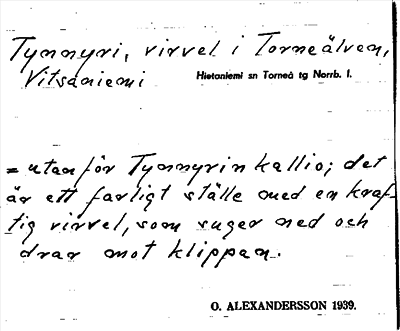 Tynnyri, virvel i Torneälven,
Vitsaniemi Hietaniemi sn Torneå tg Norrb. l.
= utanför Tynnyrin kallio; det
är ett farligt ställe med en kraf-
tig virvel, som suger ned och
drar mot klippan.
O. ALEXANDERSSON 1939.